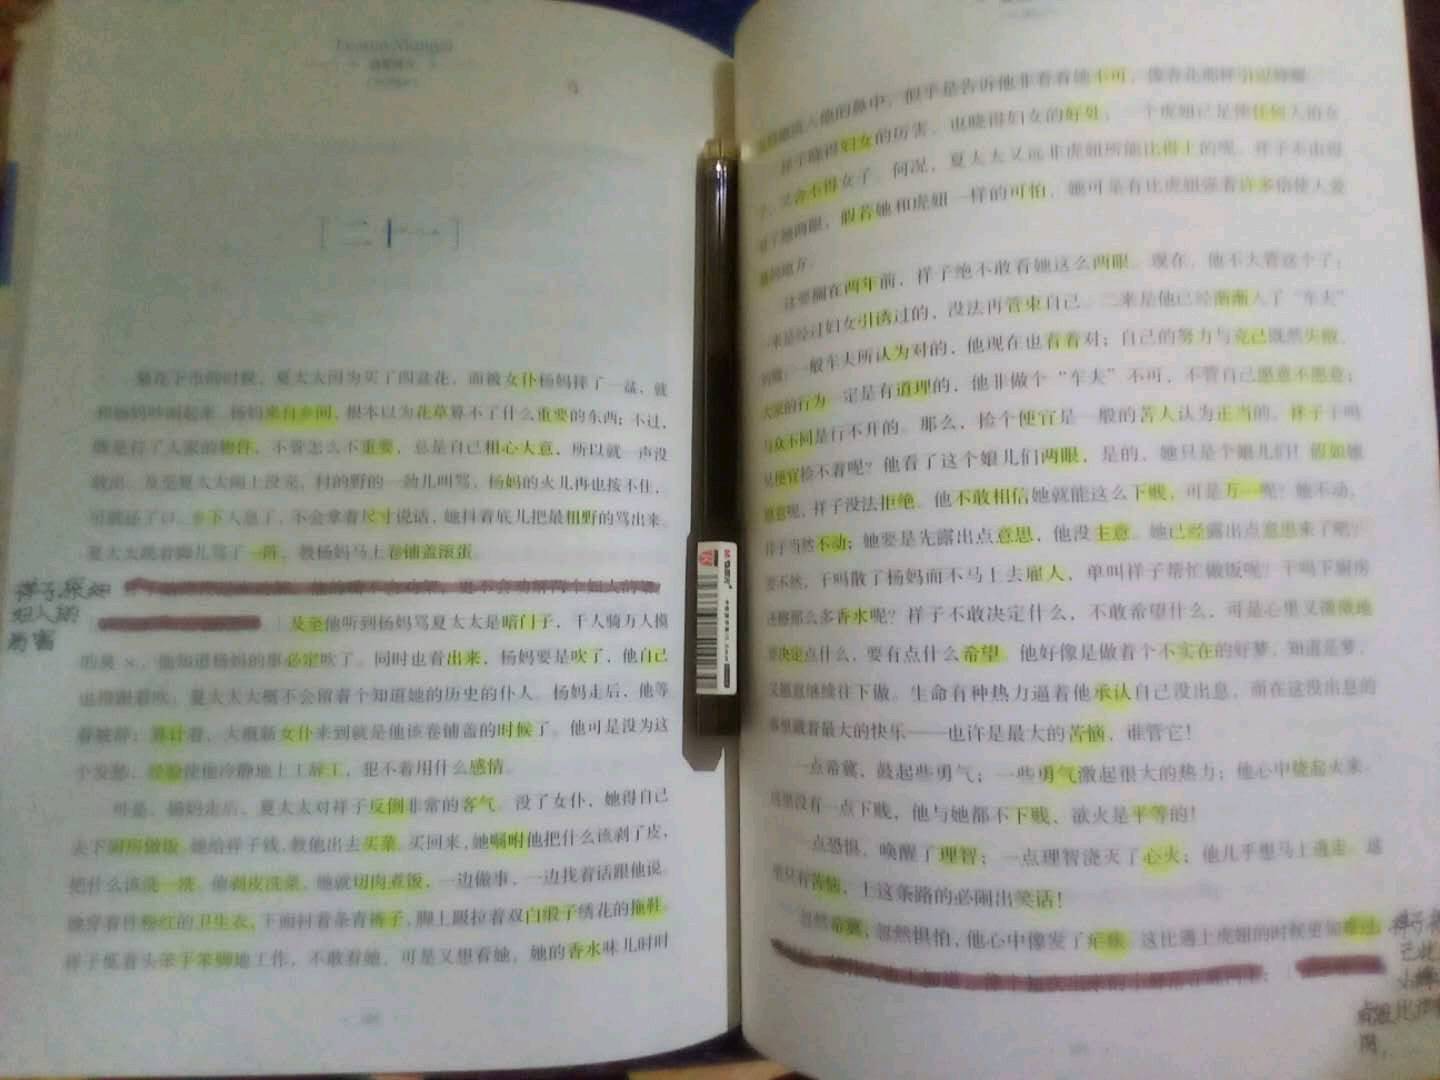 [二十一]
菊花下市的时候,夏太太因为买了四盆花,而被女仆杨妈摔了一盆,就
和杨妈吵闹起来。杨妈来自乡间,根本以为花草算不了什么重要的东西;不过,
既是打了人家的物件,不管怎么不重要,总是自己粗心大意,所以就一声没
敢出。及至夏太太闹上没完,村的野的一劲儿叫骂,杨妈的火儿再也按不住,
可就还了口。乡下人急了,不会拿着尺寸说话,她抖着底儿把最粗野的骂出来。
夏太太跳着脚儿骂了一阵,教杨妈马上卷铺盖滚蛋。
妇人的
厉害
及至他听到杨妈骂夏太太是暗门子,千人骑万人摸
的臭×,他知道杨妈的事必定吹了。同时也看出来,杨妈要是吹了,他自己
也得跟着吹;夏太太大概不会留着个知道她的历史的仆人。杨妈走后,他等
着被辞;算计着,大概新女仆来到就是他该卷铺盖的时候了。他可是没为这
个发愁,经验使他冷静地上工辞工,犯不着用什么感情。
可是,杨妈走后,夏太太对祥子反倒非常的客气。没了女仆,她得自己
去下厨房做饭。她给祥子钱,教他出去买菜。买回来,她嘱咐他把什么该剥了皮,
把什么该洗一洗。他剥皮洗菜,她就切肉煮饭,一边做事,一边找着话跟他说。
她穿着件粉红的卫生衣,下面衬着条青裤子,脚上趿拉着双白缎子绣花的拖鞋。
祥子低着头笨手笨脚地工作,不敢看她,可是又想看她,她的香水味儿时时
M&G晨光
的鼻中,似乎是告诉他非看看她不可,像香花那样引逗蜂蝶。
祥子晓得妇女的厉害,也晓得妇女的好处;一个虎妞已足使任何人怕女
子,又舍不得女子。何况,夏太太又远非虎妞所能比得上的呢。祥子不由得
看了她两眼,假若她和虎妞一样的可怕,她可是有比虎妞强着许多倍使人爱
慕的地方。
这要搁在两年前,祥子绝不敢看她这么两眼。现在,他不大管这个了:
一来是经过妇女引诱过的,没法再管束自己。二来是他已经渐渐入了“车夫”
的辙:一般车夫所认为对的,他现在也看着对;自己的努力与克己既然失败,
大家的行为一定是有道理的,他非做个“车夫”不可,不管自己愿意不愿意;
与众不同是行不开的。那么,捡个便宜是一般的苦人认为正当的,祥子干吗
见便宜捡不着呢?他看了这个娘儿们两眼,是的,她只是个娘儿们!假如她
愿意呢,祥子没法拒绝。他不敢相信她就能这么下贱,可是万一呢?她不动,
祥子当然不动;她要是先露出点意思,他没主意。她已经露出点意思来了吧?
要不然,干吗散了杨妈而不马上去雇人,单叫祥子帮忙做饭呢?干吗下厨房
还擦那么多香水呢?祥子不敢决定什么,不敢希望什么,可是心里又微微地
要决定点什么,要有点什么希望。他好像是做着个不实在的好梦,知道是梦,
又愿意继续往下做。生命有种热力逼着他承认自己没出息,而在这没出息的
事里藏着最大的快乐——也许是最大的苦恼,谁管它!
一点希冀,鼓起些勇气;一些勇气激起很大的热力;他心中烧起火来。
这里没有一点下贱,他与她都不下贱,欲火是平等的!
一点恐惧,唤醒了理智;一点理智浇灭了心火;他几乎想马上逃走。这
里只有苦恼,上这条路的必闹出笑话!
忽然希冀,忽然惧怕,他心中像发了疟疾。这比遇上虎妞的时候更加难过;